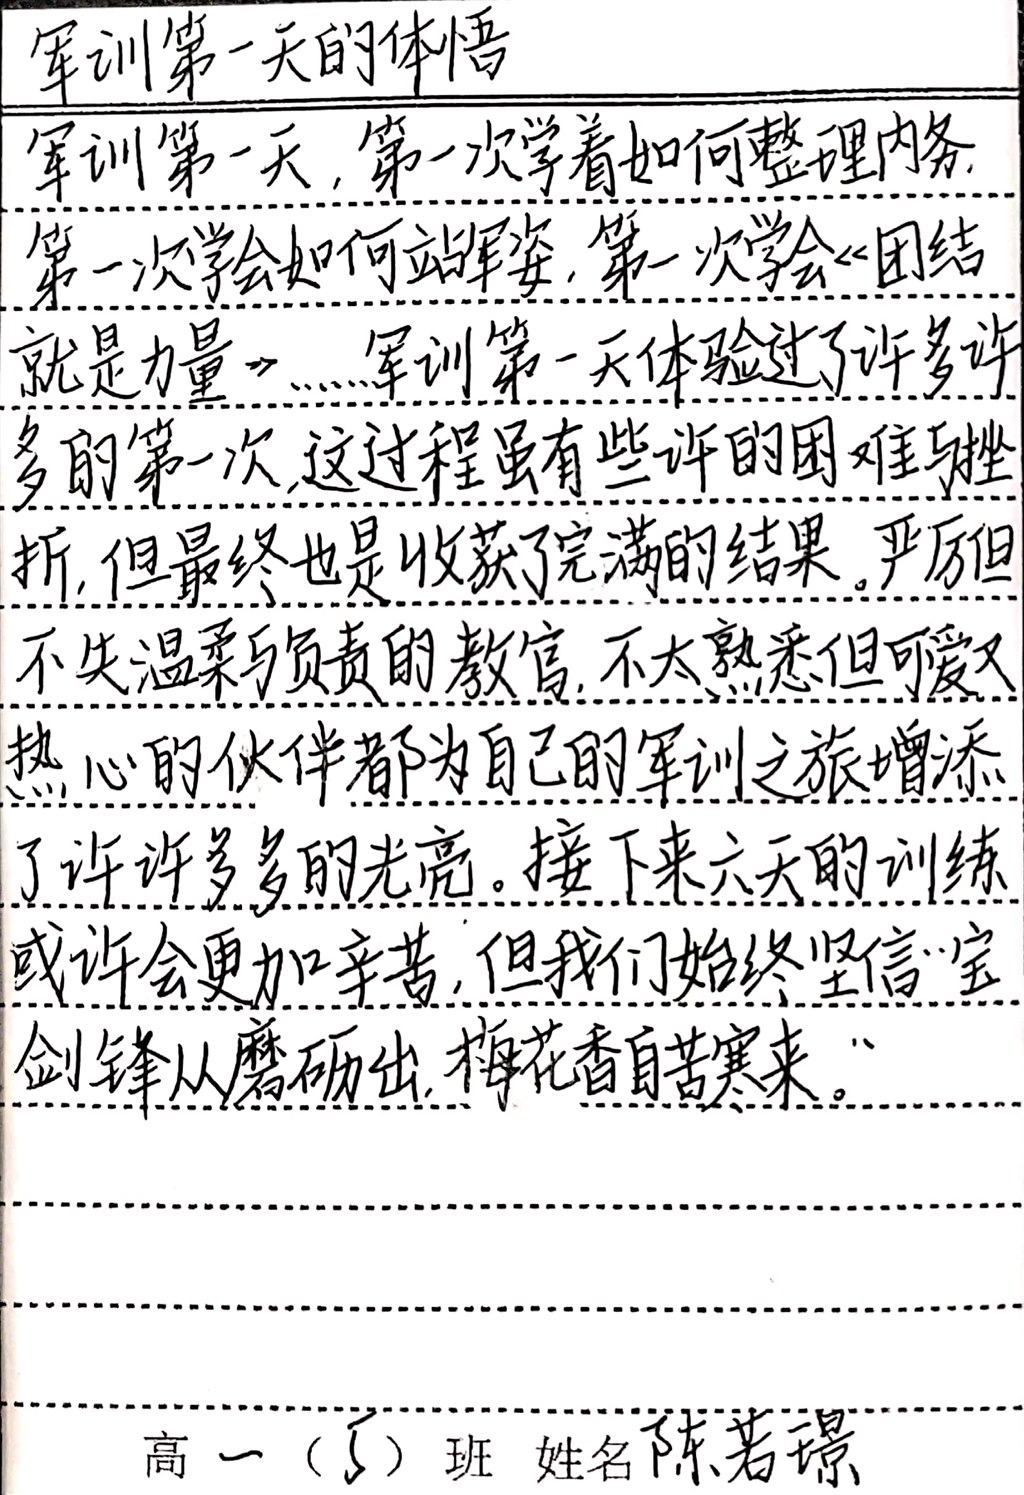 军训第一天的体悟
军训第一天，第一次学着如何整理内务，
第一次学会如何站军姿，第一次学会《团结
就是力量》……军训第一天体验过了许多许
多的第一次，这过程虽有些许的困难与挫
折，但最终也是收获了完满的结果。严厉但
不失温柔与负责的教官，不太熟悉但可爱又
热心的伙伴都为自己的军训之旅增添
了许许多多的光亮。接下来六天的训练
或许会更加辛苦，但我们始终坚信“宝
剑锋从磨砺出，梅花香自苦寒来。”
高一（5）班 姓名陈若璟